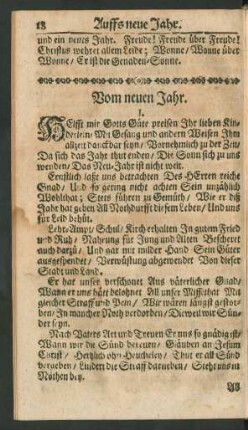 18 Auffs neue Jahr.
und ein neues Jahr. Freude! Freude über Freude!
Christus wehret allem Leide; Wonne/ Wonne über
Wonne/ Er ist die Genaden-Sonne.
Vom neuen Jahr.
1.
HElfft mir Gotts Güte preisen Ihr lieben Kin-
derlein/ Mit Gesang und andern Weisen Ihm
allzeit danckbar seyn/ Vornehmlich zu der Zeit/
Da sich das Jahr thut enden/ Die Sonn sich zu uns
wenden/ Das Neu-Jahr ist nicht weit.
Ernstlich last uns betrachten Des HErren reiche
Gnad/ Und so gering nicht achten Sein unzählich
Wohlthat; Stets führen zu Gemüth/ Wie er diß
Jahr hat geben All Nothdurfft diesem Leben/ Und uns
für Leid behüt.
Lehr-Ampt/ Schul/ Kirch erhalten In gutem Fried
und Ruh/ Nahrung für Jung und Alten Bescheret
auch darzu/ Und gar mit milder Hand Sein Güter
ausgespendet/ Verwüstung abgewendet Von dieser
Stadt und Land.
Er hat unser verschonet Aus väterlicher Gnad/
Wann er uns hätt belohnet All unser Missethat Mit
gleicher Straff und Pein/ Wir wären längst gestor-
ben/ In mancher Noth verdorben/ Dieweil wir Sün-
der seyn.
Nach Vaters Art und Treuen Er uns so gnädig ist/
Wann wir die Sünd bereuen/ Gläuben an JEsum
Christ/ Hertzlich ohn Heucheley/ Thut er all Sünd
vergeben/ Lindert die Straff darneben/ Steht uns in
Nöthen bey.